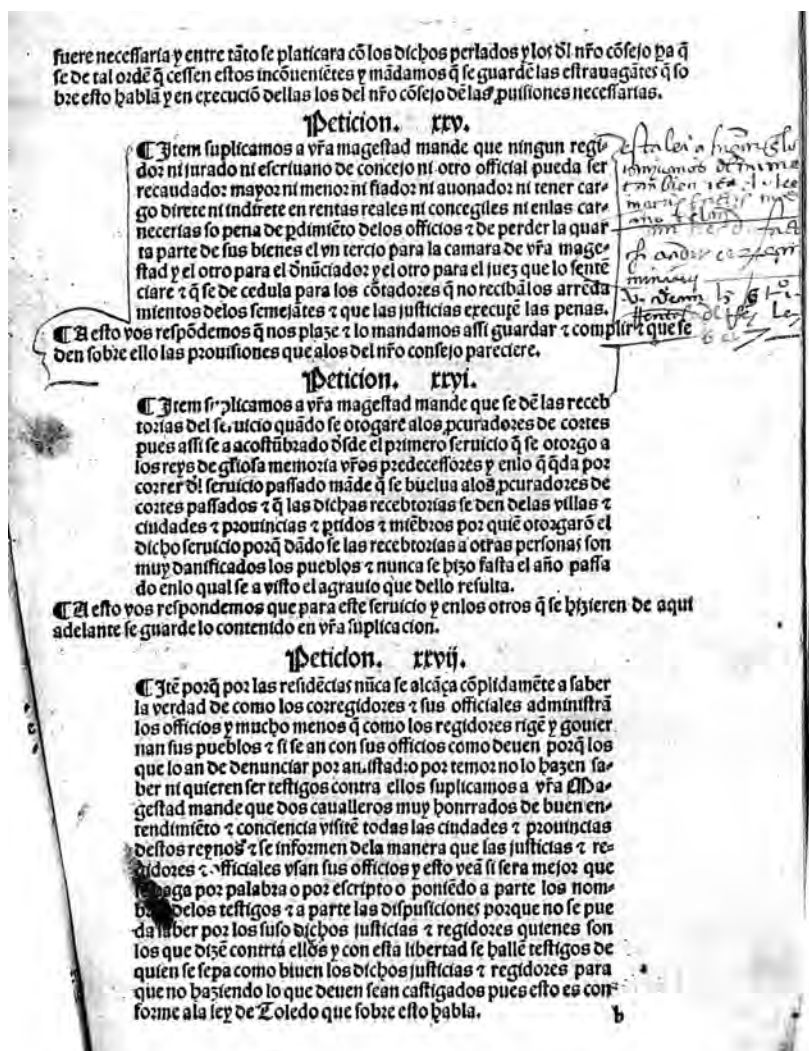 fuere necessaria y entre tãto se platicara cõ los dichos perlados y los dl nr̃o cõsejo pa q̃
se de tal ordẽ q̃ cessen estos incõueniẽtes y mãdamos q̃ se guardẽ las estrauagãtes q̃ so
bre esto hablã y en execuciõ dellas los del nr̃o cõsejo dẽ las ꝓuisiones necessarias.
Peticion. xxv.
¶ Item suplicamos a vr̃a magestad mande que ningun regi⸗
dor ni jurado ni escriuano de concejo ni otro official pueda ser
recaudador mayor ni menor ni fiador ni auonador ni tener car⸗
go direte ni indirete en rentas reales ni concegiles ni enlas car⸗
necerias so pena de ꝑdimiẽto delos officios ⁊ de perder la quar
ta parte de sus bienes el vn tercio para la camara de vr̃a mage⸗
stad y el otro para el dnũciador y el otro para el juez que lo sentẽ
ciare ⁊ q̃ se de cedula para los cõtadores q̃ no recibã los arrẽda
mientos delos semejãtes ⁊ que las justicias executẽ las penas.
¶ A esto vos respõdemos q̃ nos plaze ⁊ lo mandamos assi guardar ⁊ complir ⁊ que se
den sobre ello las prouisiones que alos del nr̃o consejo pareciere.
Peticion. xxvi.
¶ Item suplicamos a vr̃a magestad mande que se dẽ las receb
torias del seruicio quãdo se otogare alos ꝓcuradores de cortes
pues assi se a acostũbrado dsde el primero seruicio q̃ se otorgo a
los reys de gl̃iosa memoria vr̃os predecessores y enlo q̃ q̃da por
correr dl seruicio passado mãde q̃ se buelua alos ꝓcuradores de
cortes passados ⁊ q̃ las dichas recebtorias se den delas villas ⁊
ciudades ⁊ prouincias ⁊ ꝑtidos ⁊ miẽbros por quiẽ otorgarõ el
dicho seruicio porq̃ dãdo se las recebtorias a otras personas son
muy danificados los pueblos ⁊ nunca se hizo fasta el año passa
do enlo qual se a visto el agrauio que dello resulta.
¶ A esto vos respondemos que para este seruicio y enlos otros q̃ se hizieren de aqui
adelante se guarde lo contenido en vr̃a suplicacion.
Peticion. xxvij.
¶ Itẽ porq̃ por las residẽcias nũca se alcãça cõplidamẽte a saber
la verdad de como los corregidores ⁊ sus officiales administrã
los officios y mucho menos q̃ como los regidores rigẽ y gouier
nan sus pueblos ⁊ si se an con sus officios como deuen porq̃ los
que lo an de denunciar por amistad o por temor no lo hazen sa⸗
ber ni quieren ser testigos contra ellos suplicamos a vr̃a Ma⸗
gestad mande que dos caualleros muy honrrados de buen en⸗
tendimiẽto ⁊ conciencia visitẽ todas las ciudades ⁊ prouincias
destos reynos ⁊ se informen dela manera que las justicias ⁊ re⸗
gidores ⁊ officiales vsan sus officios y esto veã si sera mejor que
se haga por palabra o por escripto o poniẽdo a parte los nom⸗
bres delos testigos ⁊ a parte las dispusiciones porque no se pue
da saber por los suso dichos justicias ⁊ regidores quienes son
los que dizẽ contrta ellos y con esta libertad se hallẽ testigos de
quien se sepa como biuen los dichos justicias ⁊ regidores para
que no haziendo lo que deuen sean castigados pues esto es con⸗
forme ala ley de Toledo que sobre esto habla.
b